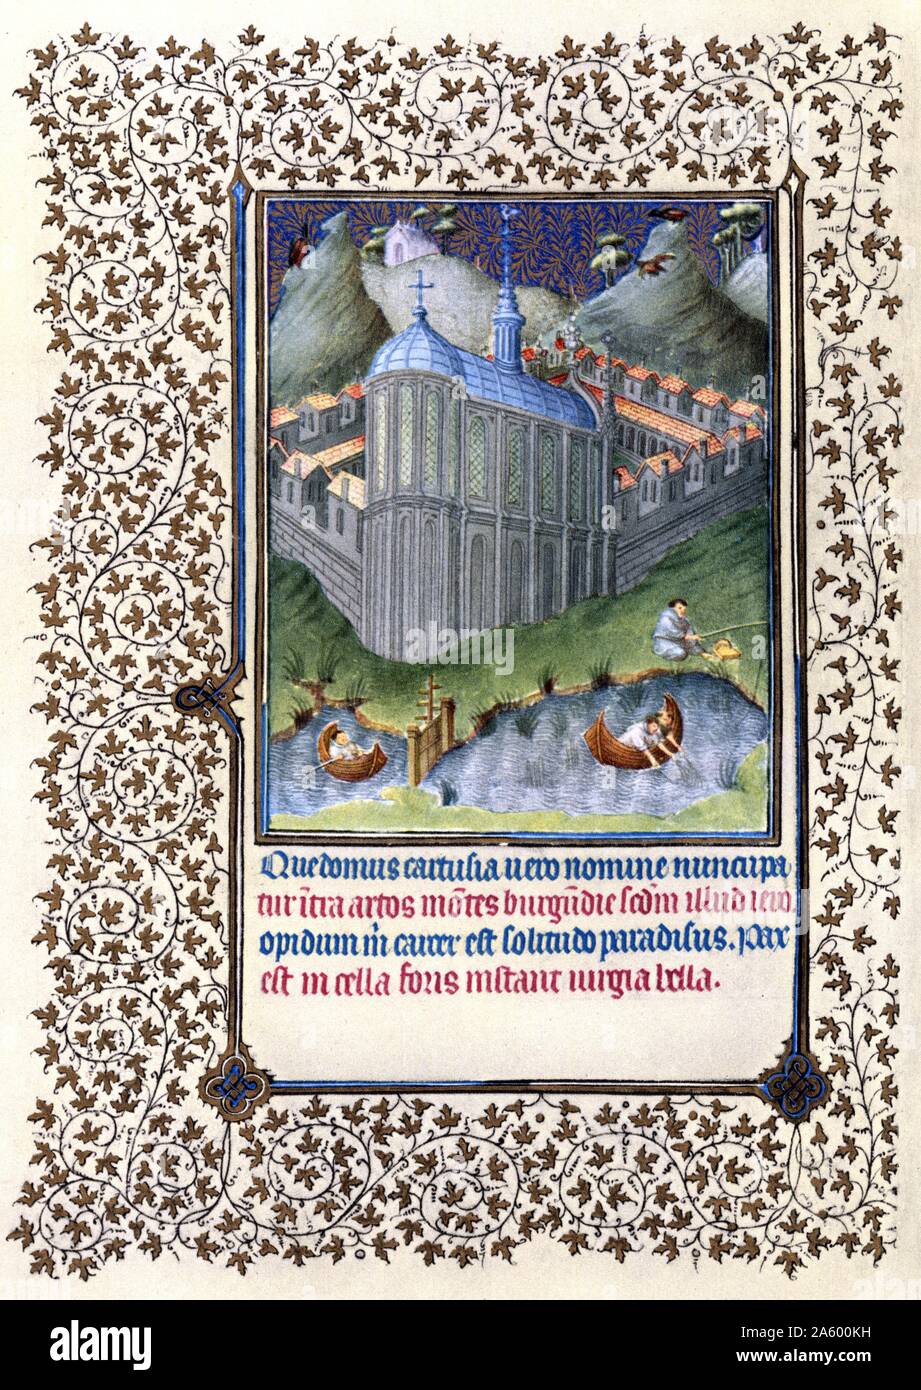 Que domus cartusia uero nomine nuncupa
tur ĩtra artos mõtes burgũdie scdm illud iero.
opidum ĩn carcer est solitudo paradisus. pax
est in cella foris instant iurgia bella.
alamy
alamy
Image ID: 2A600KH
www.alamy.com